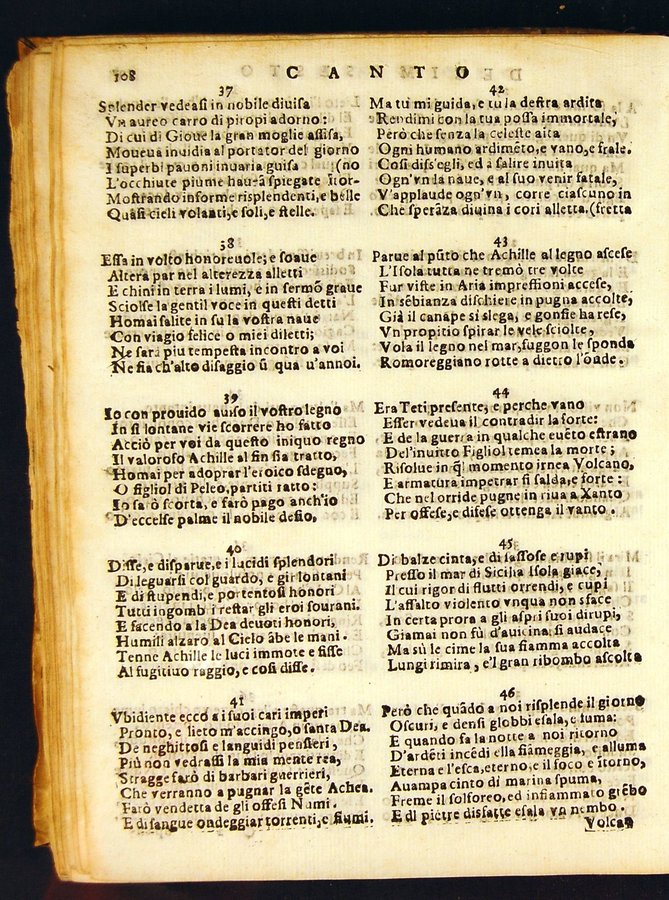 108 CANTO
37
Splender vedeasi in nobile diuisa
Vn aureo carro di piropi adorno:
Di cui di Gioue la gran moglie assisa,
Moueua inuidia al portator del giorno
I superbi pauoni inuaria guisa (no
L'occhiute piume haueã spiegate ĩtor-
Mostrando insorme risplendenti, e belle
Quasi cieli volanti, e soli, e stelle.
38
Essa in volto honoreuole; e soaue
Altera par nel alterezza alletti
E chini in terra i lumi, e in sermõ graue
Sciolse la gentil voce in questi detti
Homai salite in su la vostra naue
Con viagio felice o miei diletti;
Ne sara piu tempesta incontro a voi
Ne fia ch'alto disaggio ũ qua u'annoi.
39
Io con prouido auiso il vostro legno
In sì lontane vie scorrere ho fatto
Acciò per voi da questo iniquo regno
Il valoroso Achille al fin sia tratto,
Homai per adoprar l'eroico sdegno,
O figliol di Peleo, partiti ratto:
Io sarò scorta, e farò pago anch'io
D'eccelse palme il nobile desio,
40
Disse, e disparue, e i lucidi splendori
Dileguarsi col guardo, e gir lontani
E di stupendi, e portentosi honori
Tutti ingombri restar gli eroi sourani.
E facendo a la Dea deuoti honori,
Humili alzaro al Cielo ãbe le mani.
Tenne Achille le luci immote e fisse
Al fugitiuo raggio, e così disse.
41
Vbidiente ecco a i suoi cari imperi
Pronto, e lieto m'accingo, o santa Dea.
De neghittosi e languidi pensieri,
Più non vedrassi la mia mente rea,
Stragge farò di barbari guerrieri,
Che verranno a pugnar la gẽte Achea.
Farò vendetta de gli offesi Numi.
E di sangue ondeggiar torrenti, e fiumi.
42
Ma tu mi guida, e tu la destra ardita
Rendimi con la tua possa immortale,
Però che senza la celeste aita
Ogni humano ardimẽto, e vano, e frale.
Così diss'egli, ed à salire inuita
Ogn'vn la naue, e al suo venir fatale,
V'applaude ogn'vn, corre ciascuno in
Che sperãza diuina i cori alletta. (fretta
43
Parue al pũto che Achille al legno ascese
L'Isola tutta ne tremò tre volte
Fur viste in Aria impressioni accese,
In sẽbianza di schiere in pugna accolte,
Già il canape si slega, e gonfie ha rese,
Vn propitio spirar le vele sciolte,
Vola il legno nel mar, fuggon le sponda
Romoreggiano rotte a dietro l'õade.
44
Era Teti presente, e perche vano
Esser vedeua il contradir la sorte:
E de la guerra in qualche euẽto estrano
Del'inuitto Figliol temea la morte;
Risolue in q̃l momento irnea Volcano,
E armatura impetrar sì salda, e forte:
Che nel orride pugne in riua a Xanto
Per offese, e difese ottenga il vanto.
45
Di balze cinta, e di sassose e rupi
Presso il mar di Sicilia Isola giace,
Il cui rigor di flutti orrendi, e cupi
L'assalto violento vnqua non sface
In certa prora a gli aspri suoi dirupi,
Giamai non fù d'auicinarsi audace
Ma sù le cime la sua fiamma accolta
Lungi rimira, e'l gran ribombo ascolta
46
Però che quãdo a noi risplende il giorno
Oscuri, e densi globbi esala, e fuma:
E quando fa la notte a noi ritorno
D'ardẽti incẽdi ella fiãmeggia, e alluma
Eterna e l'esca, eterno, e il foco e ĩtorno,
Auampa cinto di marina spuma,
Freme il solforeo, ed infiammato grẽbo
E di pietre disfatte esala vn nembo.
Volcan